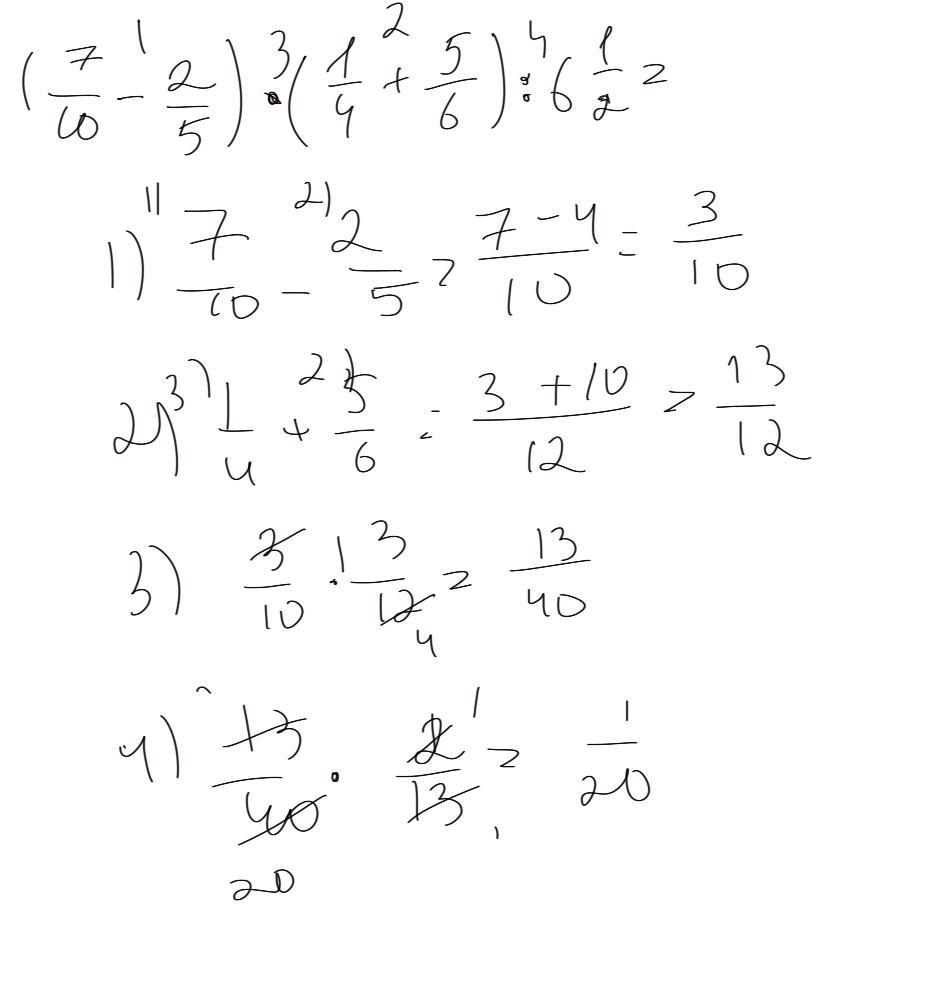 (7/10 - 2/5) · (1/4 + 5/6) : 6 1/2 =
1) 7/10 - 2/5 = (7-4)/10 = 3/10
2) 1/4 + 5/6 = (3+10)/12 = 13/12
3) 3/10 · 13/12 = 13/40
4) 13/40 · 2/13 = 1/20